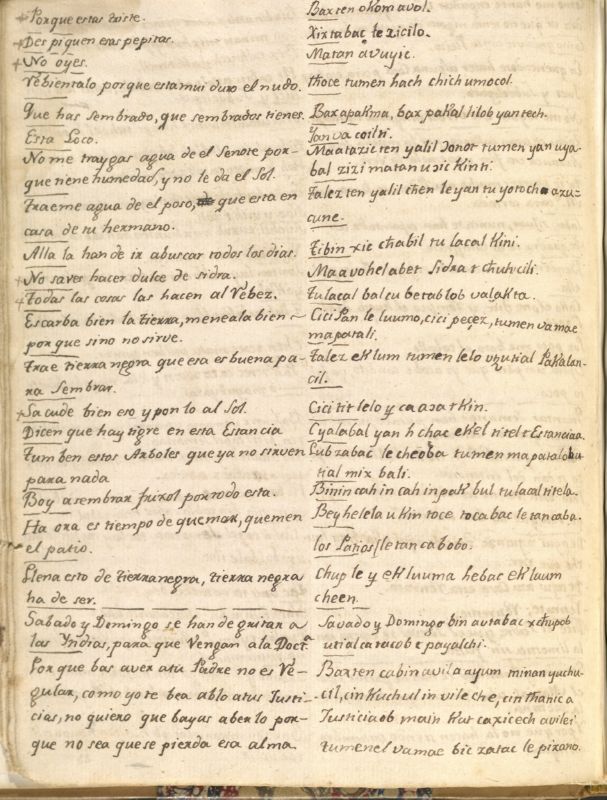 Porque estas triste.
Baxten okom avol.
Des piquen esas pepitas.
Xixtabac le zicilo.
No oyes.
Matan avuyic.
Vebientalo porque estamui duro el nudo.
thoce tumen hach chich umocol.
Que has sembrado, que sembrados tienes.
Baxapakma, bax pakal lilob yan tech.
Esta Loco.
No me traygas agua de el Senote por-
Maataxic ten yalil
tumen yan uya-
que tiene humedad, y no le da el Sol.
bal zizi matan
kinti.
Traeme agua de el poso, que esta en
Talez ten yalil chen le yan tu yotoch
casa de tu hermano.
cune.
Alla la han de ir abuscar todos los dias.
tu lacal kini.
No saves hacer dulce de sidra.
Maavohel abet Sidra
Todas las cosas las hacen al Vebez.
tulacal balcu betablob valakta.
Escarba bien la tierra, meneala bien
Cici Pan le luumo, cici peçez, tumen vamae
porque sino no sirve.
mapatali.
Trae tierra negra que esa es buena pa-
Talez ek lum tumen lelo
utial Pakalan-
ra Sembrar.
cil.
Sacude bien eso y pon lo al Sol.
Cici tit lelo y ca
kin.
Dicen que hay tigre en esta Estancia
Cyalabal yan h chac ekel ti le
Estanciaa.
Tumben estos Arboles que ya no sirven
Lubzabac le cheoba tumen mapatalob u
para nada
tial mix bali.
Boy asembrar frixol portodo esta.
Binin cah in cah in pak bul tulacal titela.
Ha ora es tiempo de quemar, quemen
Beyhelela u kin toce tocabac le tancaba.
el patio.
los Patios/letancabobo.
Llena esto de tierranegra, tierra negra
Chup le y ek luuma hebac ek luum
ha de ser.
cheen.
Sabado y Domingo se han de gritar a
Savado y Domingo bin avtabac
las Yndias, para que Vengan ala Doctª
utial catacob
payalchi.
Por que bas aver atu Padre no es Ve-
Baxten cabin avila ayum minan yuchu-
gular, como yo te bea ablo atus Justi-
cil, cin kuchul in vile che, cin thanic a
cias, no quiero que bayas aberlo por-
Justiciaob main kat ca xicech avilei
que no sea que se pierda esa alma.
tumenel vamae bic zatac le pixano.